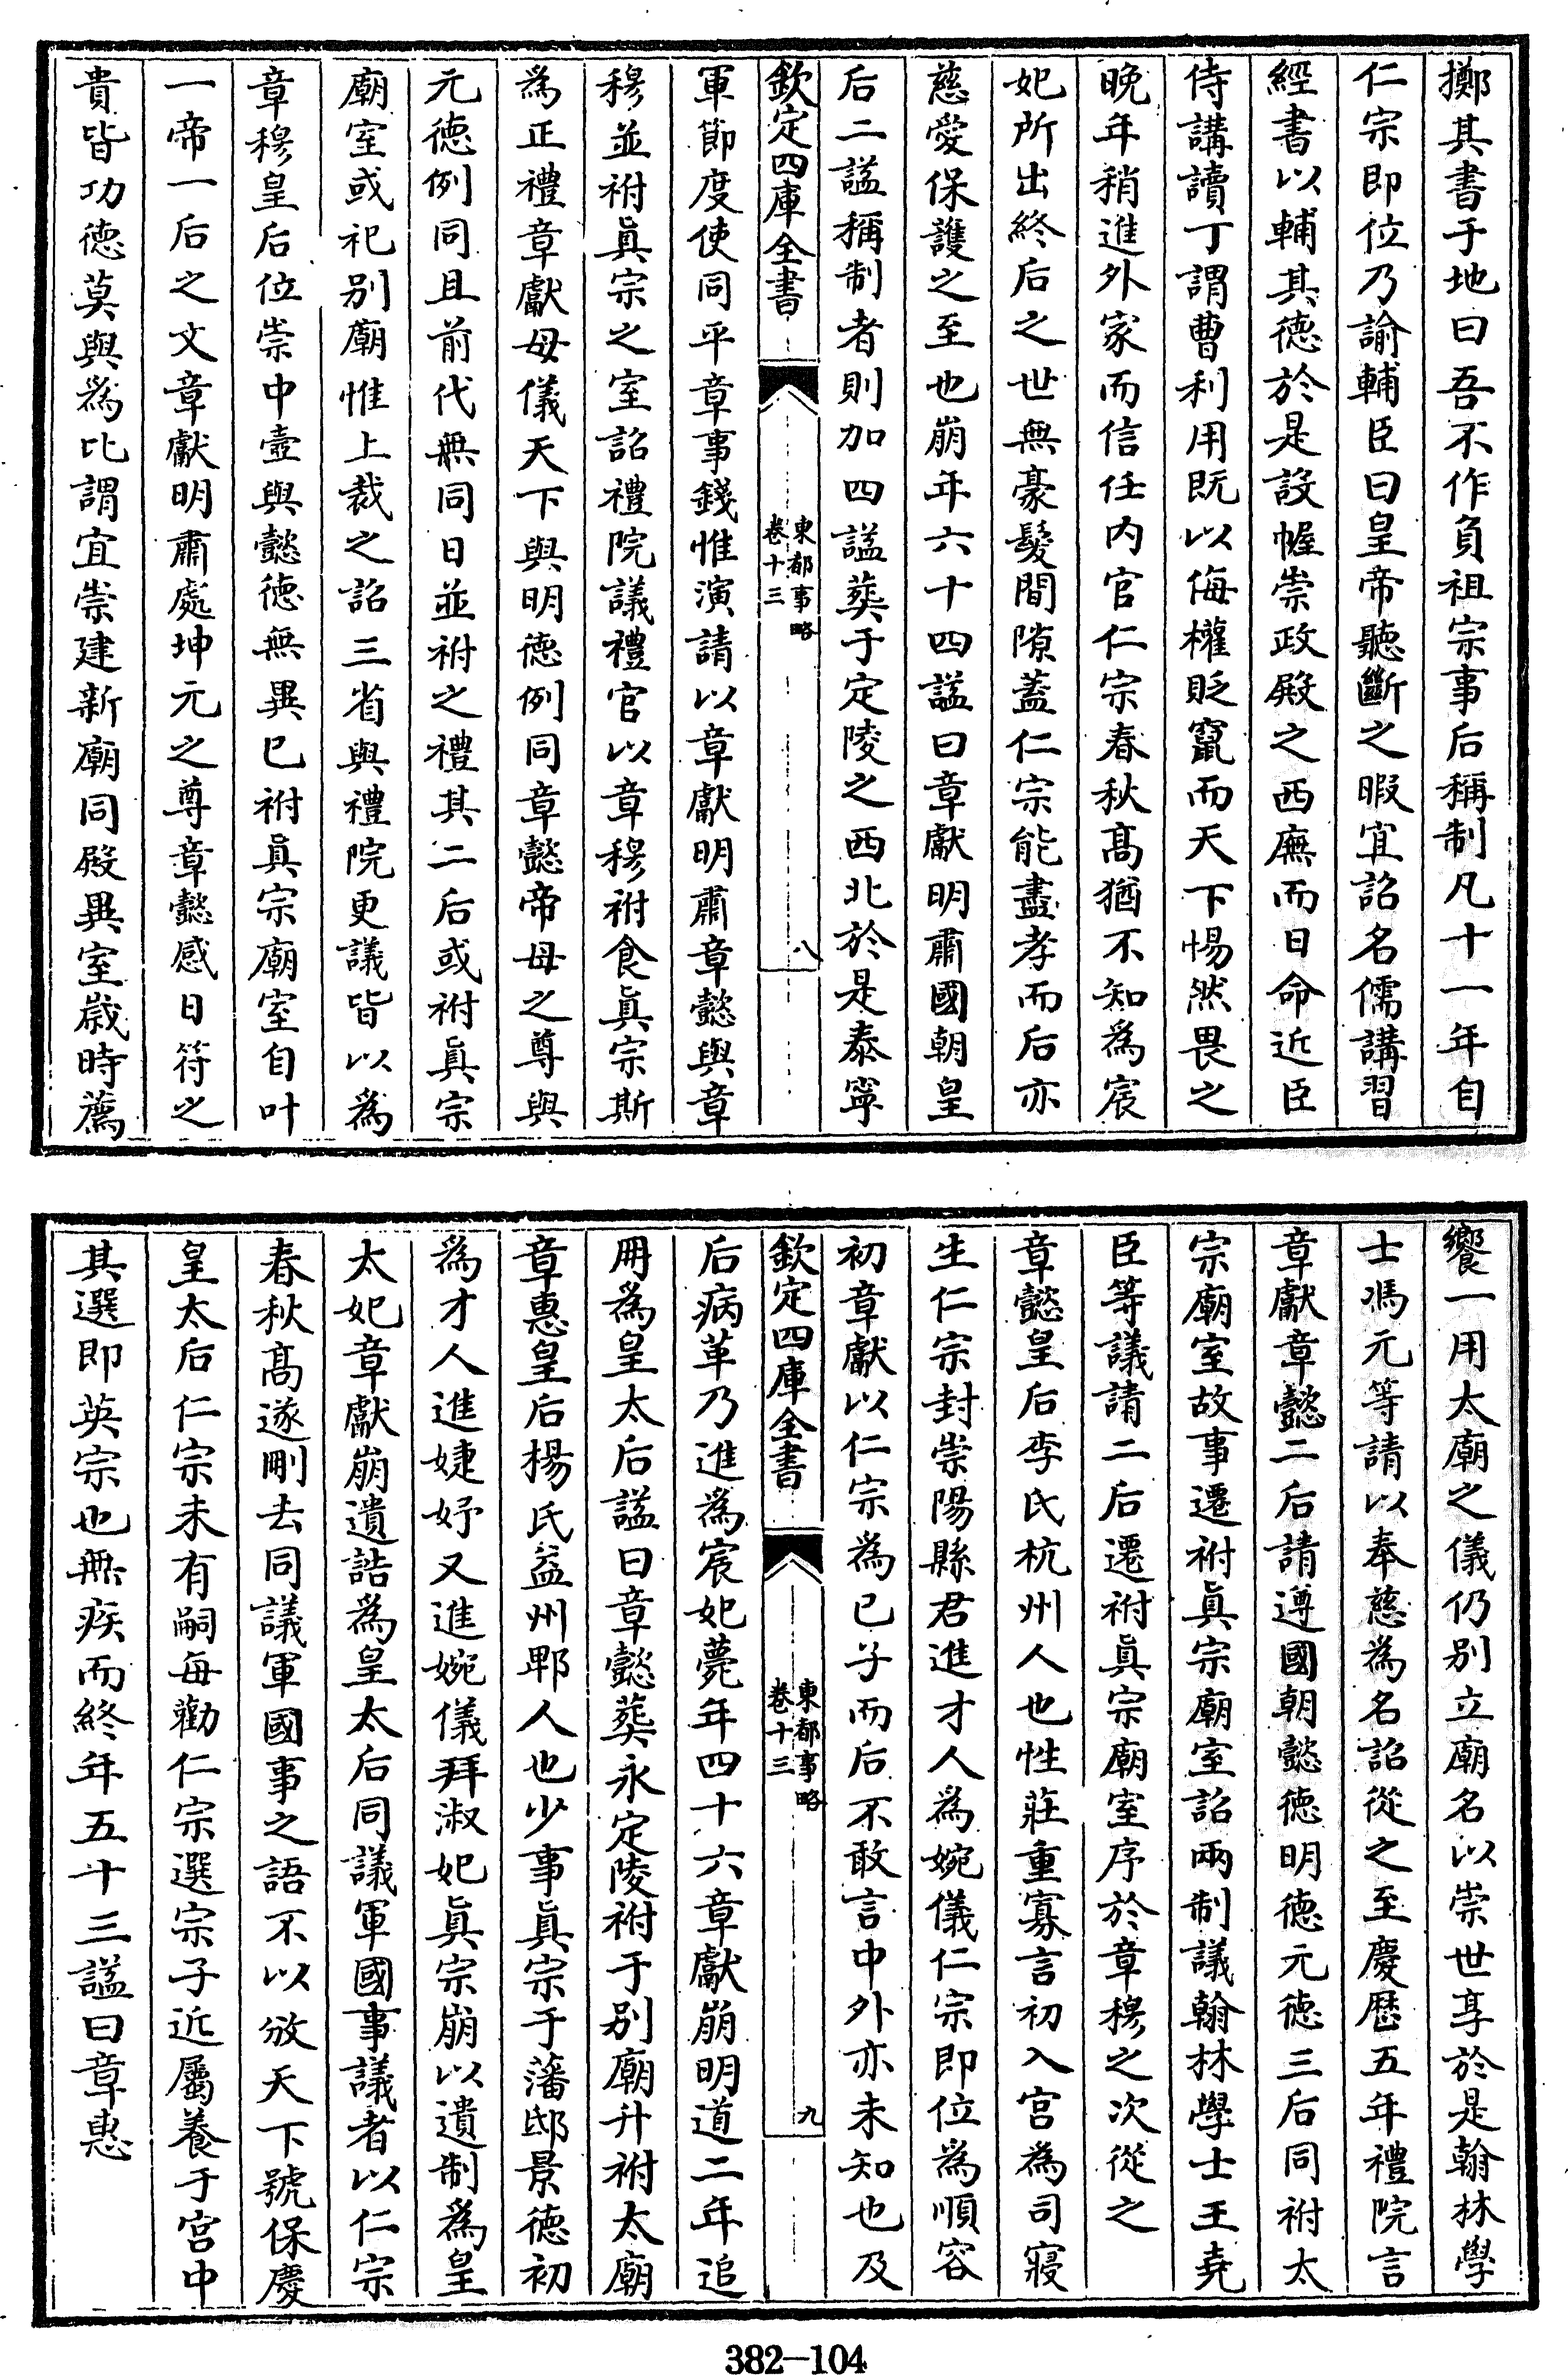 擲其書于地曰吾不作負祖宗事后稱制凡十一年自
仁宗即位乃諭輔臣曰皇帝聽斷之暇宜詔名儒講習
經書以輔其徳於是設幄崇政殿之西廡而日命近臣
侍講讀丁謂曹利用既以侮權貶竄而天下惕然畏之
晚年稍進外家而信任内官仁宗春秋髙猶不知為宸
妃所出終后之世無豪髮間隙蓋仁宗能盡孝而后亦
慈愛保護之至也崩年六十四諡曰章獻明肅國朝皇
后二諡稱制者則加四諡葬于定陵之西北於是泰寧
欽定四庫全書
東都事略
卷十三
八
軍節度使同平章事錢惟演請以章獻明肅章懿與章
穆並祔真宗之室詔禮院議禮官以章穆祔食真宗斯
為正禮章獻母儀天下與明徳例同章懿帝母之尊與
元徳例同且前代無同日並祔之禮其二后或祔真宗
廟室或祀别廟惟上裁之詔三省與禮院更議皆以為
章穆皇后位崇中壼與懿徳無異已祔真宗廟室自叶
一帝一后之文章獻明肅處坤元之尊章懿感日符之
貴皆功徳莫與為比謂宜崇建新廟同殿異室嵗時薦
饗一用太廟之儀仍别立廟名以崇世享於是翰林學
士馮元等請以奉慈為名詔從之至慶厯五年禮院言
章獻章懿二后請遵國朝懿徳明徳元徳三后同祔太
宗廟室故事遷祔真宗廟室詔兩制議翰林學士王堯
臣等議請二后遷祔真宗廟室序於章穆之次從之
章懿皇后李氏杭州人也性莊重寡言初入宫為司寢
生仁宗封崇陽縣君進才人為婉儀仁宗即位為順容
初章獻以仁宗為已子而后不敢言中外亦未知也及
欽定四庫全書
東都事略
卷十三
九
后病革乃進為宸妃薨年四十六章獻崩明道二年追
冊為皇太后諡曰章懿葬永定陵祔于别廟升祔太廟
章惠皇后楊氏益州郫人也少事真宗于藩邸景徳初
為才人進婕妤又進婉儀拜淑妃真宗崩以遺制為皇
太妃章獻崩遺誥為皇太后同議軍國事議者以仁宗
春秋髙遂刪去同議軍國事之語不以放天下號保慶
皇太后仁宗未有嗣每勸仁宗選宗子近屬養于宫中
其選即英宗也無疾而終年五十三諡曰章惠
382-104